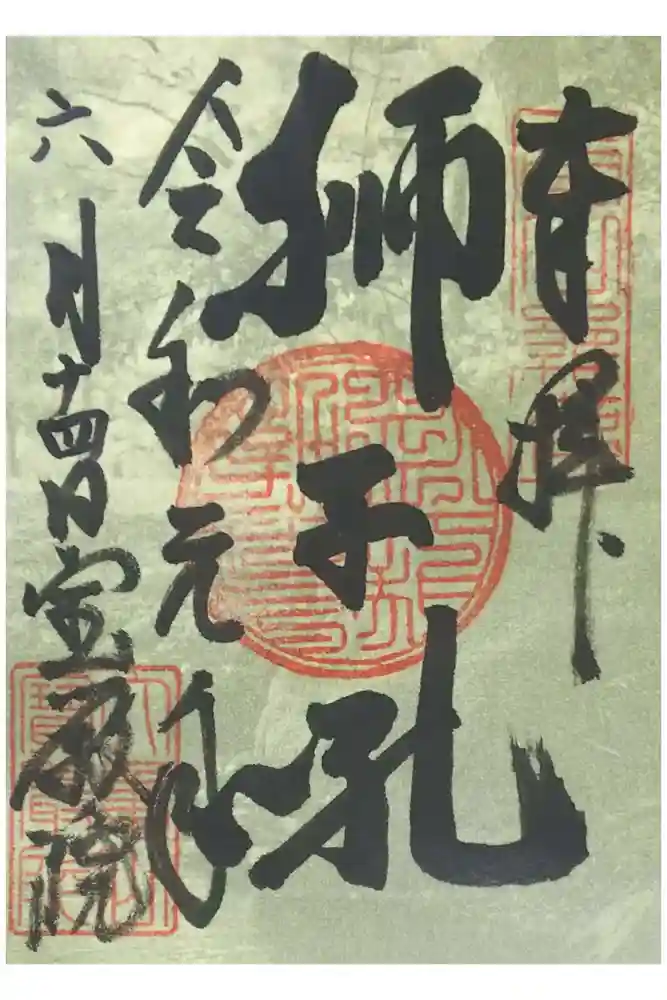 奉拝
獅子吼
令和元年
六月十四日宝厳院